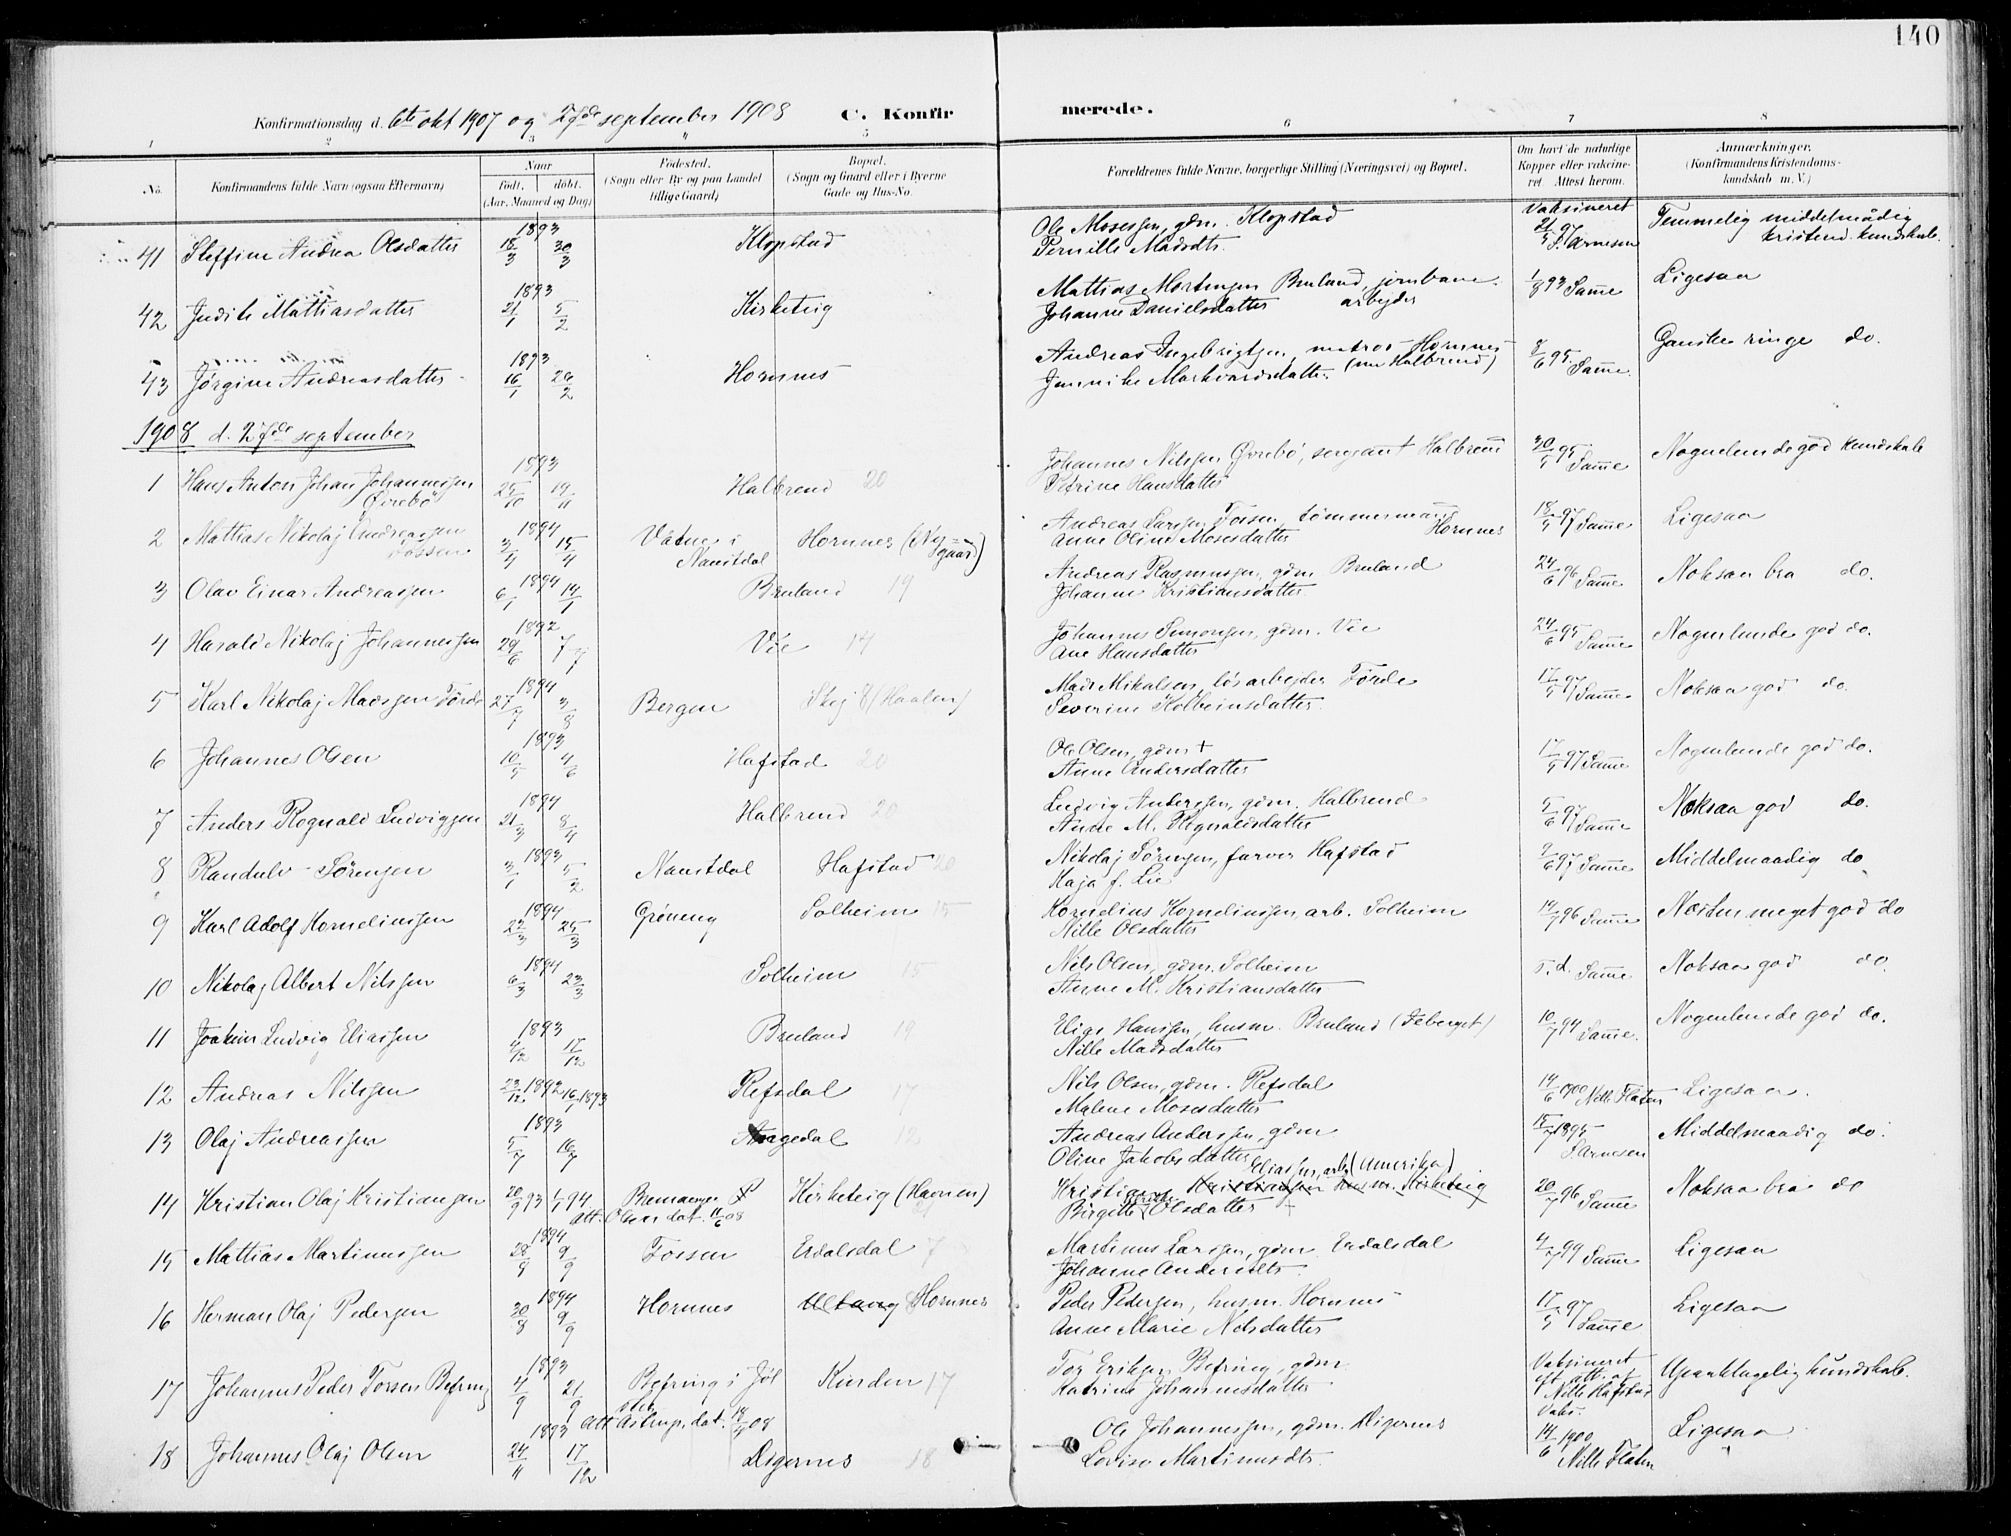 140
Konfirmationsdag d. 6te okt 1907 og 27de september 1908 C. Konfirmerede.
1 2 3 4 5 6 7 8
No. Konfirmandens fulde Navn (ogsaa Efternavn) Naar født, døbt, (Aar, Maaned og Dag) Fødested, (Sogn eller By og paa Landet tillige Gaard) Bopæl. (Sogn og Gaard eller i Byerne Gade og Hus-No. Forældrenes fulde Navne, borgerlige Stilling (Næringsvei) og Bopæl. Om havt de naturlige Kopper eller vakcineret. Attest herom. Anmærkninger. (Konfirmandens Kristendomskundskab m. V.)
41 Steffine Andrea Olsdatter 1893 18/3 30/3 Klopstad Ole Mosessen, gdm. Klopstad Pernille Madsdtr. Vaksineret 21/5 97 S. Arnesen Temmelig middelmådig kristend. kundskab.
42 Judite Mattiasdatter 1893 21/1 5/2 Kirketeig Mattias Mortensen Bruland, jernbanearbejder Johanne Danielsdatter 1/8 93 Samme Ligesaa
43 Jørgine Andreasdatter 1893 16/1 26/2 Hornnes Andreas Ingebrigtsen, matros Hornnes (nu Halbrend) Jannike Markvardsdatter 8/6 95 Samme Ganske ringe do.
1908 d. 27de september
1 Hans Anton Johan Johannessen Ørebö 1893 25/10 19/11 Halbrend 20 Johannes Nilssen Ørebö, sergeant Halbrend Petrine Hansdatter 30/5 95 Samme Nogenlunde god kundskab
2 Mattias Nikolaj Andreassen Fossen 1894 3/4 15/4 Våtne i Naustdal Hornnes (Nygaard) Andreas Larssen Fossen, tømmermann Hornnes Anne Oline Mosesdatter 18/5 97 Samme Ligesaa
3 Olav Einar Andreassen 1894 6/1 14/1 Bruland 19 Andreas Rasmussen, gdm. Bruland Johanne Kristiansdatter 24/6 96 Samme Noksaa bra do.
4 Harald Nikolaj Johannessen 1892 29/6 7/7 Vie 14 Johannes Simonsen, gdm. Vie Ane Hansdatter 24/6 95 Samme Nogenlunde god do.
5 Karl Nikolaj Madssen Førde 1894 27/7 3/8 Bergen Skej 8 (Haalen) Mads Mikalsen, løsarbejder Førde Severine Kolbeinsdatter 17/5 97 Samme Noksaa god do.
6 Johannes Olsen 1893 10/5 4/6 Hafstad 20 Ole Olsen, gdm + Anne Andersdatter 17/5 97 Samme Nogenlunde god do.
7 Anders Rognald Ludvigsen 1894 21/3 8/4 Halbrend 20 Ludvig Anderssen, gdm. Halbrend Anne M. Rognaldsdatter 5/6 97 Samme Noksaa god do.
8 Randulv Sørensen 1893 3/1 5/2 Naustdal Hafstad 20 Nikolaj Sørensen, farver Hafstad Kaja f. Lie 2/6 97 Samme Middelmaadig do
9 Karl Adolf Korneliussen 1894 22/3 25/3 Gröneng Solheim 15 Kornelius Korneliussen, arb. Solheim Nille Olsdatter 14/7 96 Samme Næsten meget god do
10 Nikolaj Albert Nilssen 1894 6/3 23/3 Solheim 15 Nils Olsen, gdm. Solheim Anne M. Kristiansdatter s. d. Samme Noksaa god do.
11 Joakim Ludvig Eliassen 1893 4/12 17/12 Bruland 19 Elias Hanssen, husm. Bruland (Feberget) Nille Madsdatter 10/7 94 Samme. Nogenlunde god do.
12 Andreas Nilssen 22/12 1892 16/1 1893 Refsdal 17 Nils Olsen, gdm. Refsdal Malene Mosesdatter 14/6 1900 Nille Flaten Ligesaa.
13 Olaj Andreassen 1893 5/7 16/7 Angedal 12 Andreas Anderssen, gdm Oline Jakobsdatter 15/7 1895 S. Arnesen Middelmaadig do.
14 Kristian Olaj Kristiansen 20/9 93 1/1 94 Att. Olsen dat. 11/6 08 Kirketeig (Havnen) Kristian Eliassen, arb (Amerika) Kristiansen husm. Kirketeig Birgitte Olsdatter 20/7 96 Samme Noksaa bra do
15 Mattias Martinussen 1894 28/8 9/9 Fossen Erdalsdal 7 Martinus Larssen, gdm Erdalsdal Johanne Andersdtr. 4/7 99 Samme Ligesaa
16 Herman Olaj Pedersen 1894 20/8 9/9 Hornnes Ultang Hornnes Peder Pedersen, husm. Hornnes Anne Marie Nilsdatter 17/5 97 Samme Ligesaa
17 Johannes Peder Torssen Befring 1893 4/9 21/9 Befring i Jølster Att. Astrup, dat. 18/9 08 Kinden 17 Tor Eriksen Befring, gdm. Katrine Johannesdatter Vaksineret eft. att. af Nille Hafstad Upaaklagelig kundskab.
18 Johannes Olaj Olsen 1893 24/11 17/12 Digernes 18 Ole Johannessen, gdm. Digernes Lovise Martinusdtr. Vaks. 14/6 1900 Nille Flaten Ligesaa